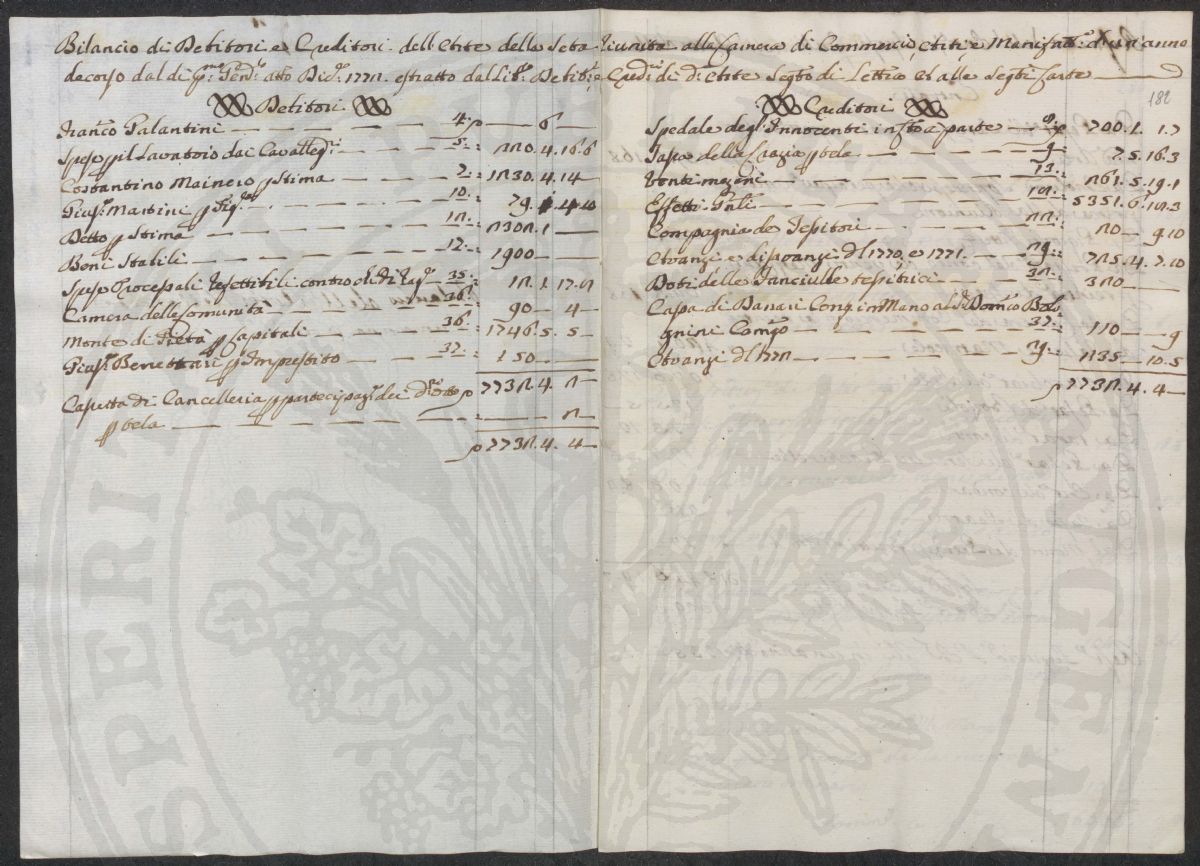 Bilancio di Debitori e Creditori dell'Arte della Seta Riunita alla Camera di Commercio, Arti, e Manifat.e d'un anno
decorso dal di p.mo Genn.o atto Dic.e 1772. estratto dal Lib.o Debit.i e Cred.ri di d.a Arte Seg.to di Lettera Et alle Seg.ti Carte
182
Debitori
Franco Galantini 4. 6
Spese p il Lavatoio dai Cavalleg.ri 5. 220. 4. 16. 6
Costantino Mainero p Stima 7. 1230. 4. 14
Gius.e Martini p 10. 79. 4. 10
Detto p Stima 12. 2302. 1
Beni Stabili 17. 1900
Spese Processali Inesattibili contro 35. 12. 1. 17. 2
Camera delle Comunità 36. 90 4
Monte di Pietà p Capitali 36. 1746. 5. 5
Gius.e Benettari p Imprestito 37. 150
7732. 4. 2
Cassetta di Cancelleria p partecipaz.i dei
p tela 2
7732. 4. 4
Creditori
Spedale degl'Innocenti in sto a parte 200. 1. 1. 7
Tassa della Grazia p tela 9. 7. 5. 16. 3
Ventimezeni 13. 261. 5. 19. 1
Effetti 5351. 6. 12. 3
Compagnia de Tessitori 22. 20 9 10
Avanzi e disavanzi dl 1770, e 1771. 29. 725. 4. 7. 10
Doti delle Fanciulle tessitrici 32. 320
Cassa di Danari Cont. in Mano al S.r Dom.co Bolo
gnini Camgo 37. 110 9
Avanzi dl 1772 29. 235 10. 5
7732. 4. 4